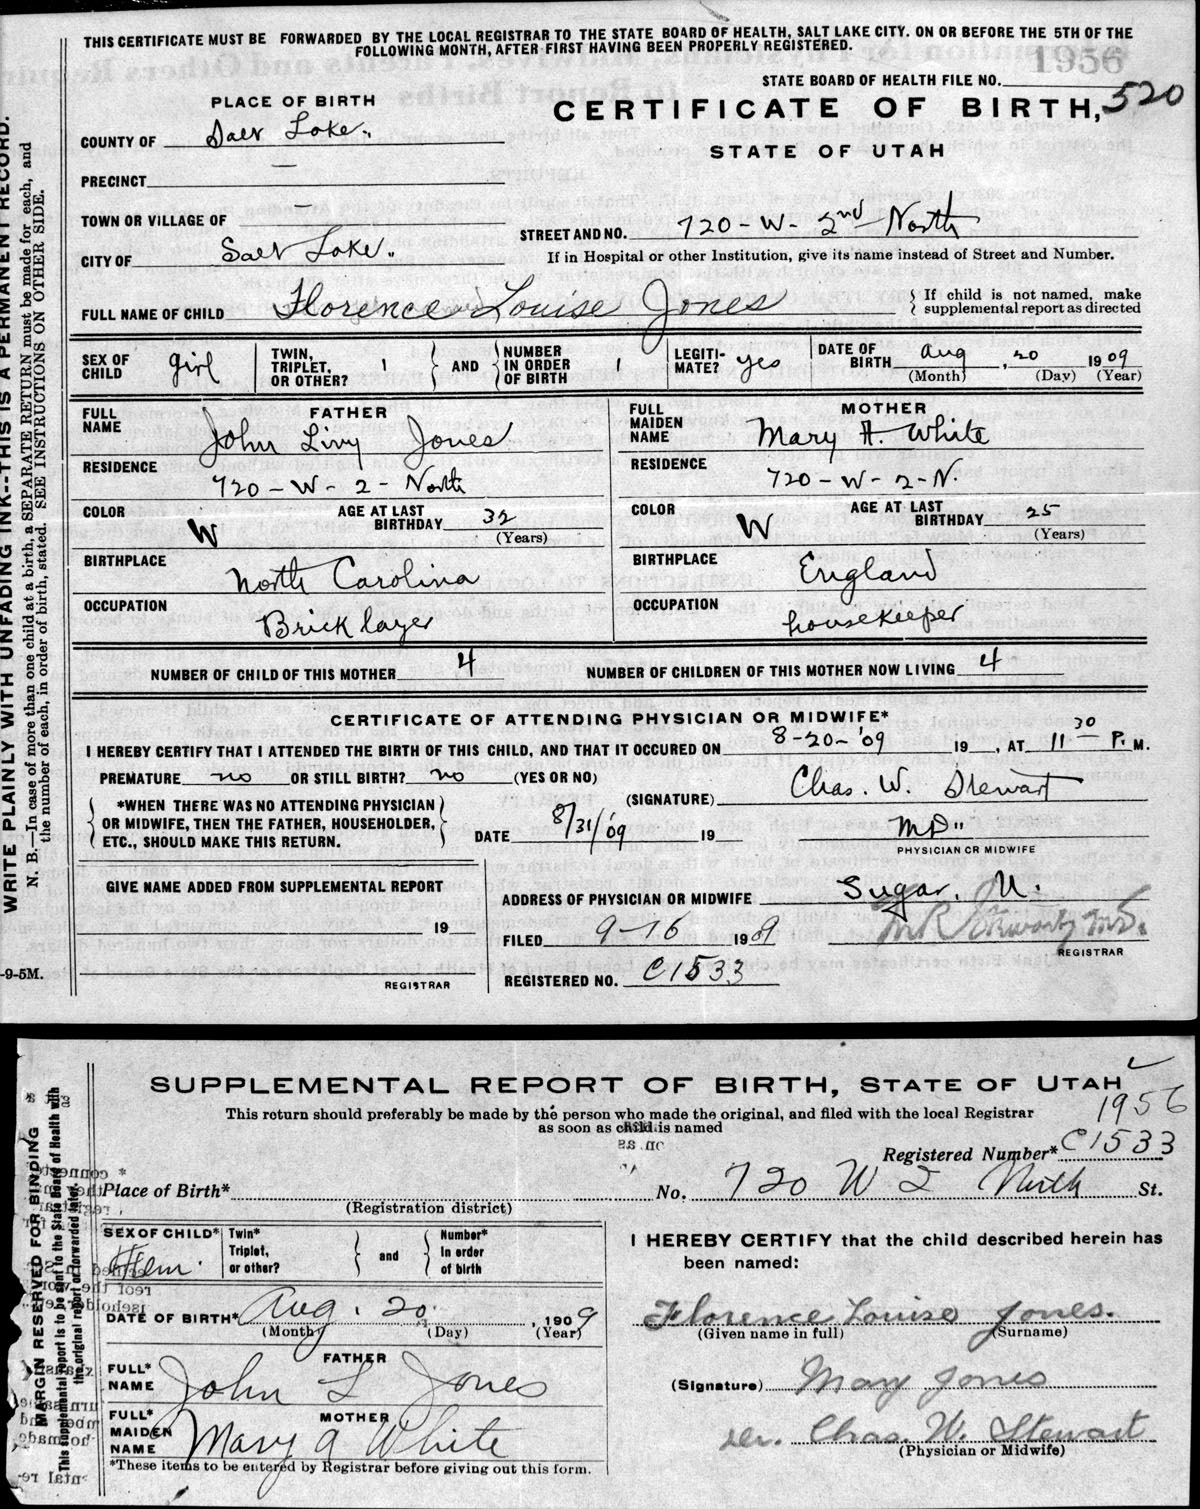 THIS CERTIFICATE MUST BE FORWARDED BY THE LOCAL REGISTRAR TO THE STATE BOARD OF HEALTH, SALT LAKE CITY. ON OR BEFORE THE 5TH OF THE
FOLLOWING MONTH, AFTER FIRST HAVING BEEN PROPERLY REGISTERED.
STATE BOARD OF HEALTH FILE NO. 1956
PLACE OF BIRTH
CERTIFICATE OF BIRTH, 520
STATE OF UTAH
COUNTY OF Salt Lake
PRECINCT —
TOWN OR VILLAGE OF —
STREET AND NO. 720 - W - 2nd North
CITY OF Salt Lake
If in Hospital or other Institution, give its name instead of Street and Number.
FULL NAME OF CHILD Florence Louise Jones
{ If child is not named, make
supplemental report as directed
SEX OF CHILD girl
TWIN, TRIPLET, OR OTHER? 1
AND
NUMBER IN ORDER OF BIRTH 1
LEGITI-MATE? yes
DATE OF BIRTH Aug, 20 1909
(Month) (Day) (Year)
FATHER
FULL NAME John Livy Jones
RESIDENCE 720 - W - 2 - North
COLOR W
AGE AT LAST BIRTHDAY 32
(Years)
BIRTHPLACE North Carolina
OCCUPATION Brick layer
MOTHER
FULL MAIDEN NAME Mary A. White
RESIDENCE 720 - W - 2 - N.
COLOR W
AGE AT LAST BIRTHDAY 25
(Years)
BIRTHPLACE England
OCCUPATION housekeeper
NUMBER OF CHILD OF THIS MOTHER 4
NUMBER OF CHILDREN OF THIS MOTHER NOW LIVING 4
CERTIFICATE OF ATTENDING PHYSICIAN OR MIDWIFE*
I HEREBY CERTIFY THAT I ATTENDED THE BIRTH OF THIS CHILD, AND THAT IT OCCURED ON 8-20-'09 19__, AT 11 30 P. M.
PREMATURE no OR STILL BIRTH? no (YES OR NO)
(SIGNATURE) Chas. W. Stewart
*WHEN THERE WAS NO ATTENDING PHYSICIAN
OR MIDWIFE, THEN THE FATHER, HOUSEHOLDER,
ETC., SHOULD MAKE THIS RETURN.
DATE 8/31/'09 19
MD"
PHYSICIAN OR MIDWIFE
GIVE NAME ADDED FROM SUPPLEMENTAL REPORT
19
REGISTRAR
ADDRESS OF PHYSICIAN OR MIDWIFE Sugar. U.
FILED 9-16 1909
REGISTRAR
REGISTERED NO. C1533
WRITE PLAINLY WITH UNFADING INK--THIS IS A PERMANENT RECORD.
N. B.—In case of more than one child at a birth, a SEPARATE RETURN must be made for each, and
the number of each, in order of birth, stated. SEE INSTRUCTIONS ON OTHER SIDE.
-9-5M.
SUPPLEMENTAL REPORT OF BIRTH, STATE OF UTAH
This return should preferably be made by the person who made the original, and filed with the local Registrar
as soon as child is named
1956
Registered Number* C1533
Place of Birth*
(Registration district)
No. 720 W 2 North St.
SEX OF CHILD* Fem.
Twin* Triplet, or other?
and
Number* In order of birth
DATE OF BIRTH* Aug. 20, 1909
(Month) (Day) (Year)
FATHER
FULL* NAME John L Jones
MOTHER
FULL* MAIDEN NAME Mary A White
*These items to be entered by Registrar before giving out this form.
I HEREBY CERTIFY that the child described herein has
been named:
Florence Louise Jones.
(Given name in full) (Surname)
(Signature) Mary Jones
Chas. W. Stewart
(Physician or Midwife)
MARGIN RESERVED FOR BINDING
This supplemental report is to be sent to the State Board of Health with
the original report or forwarded later.